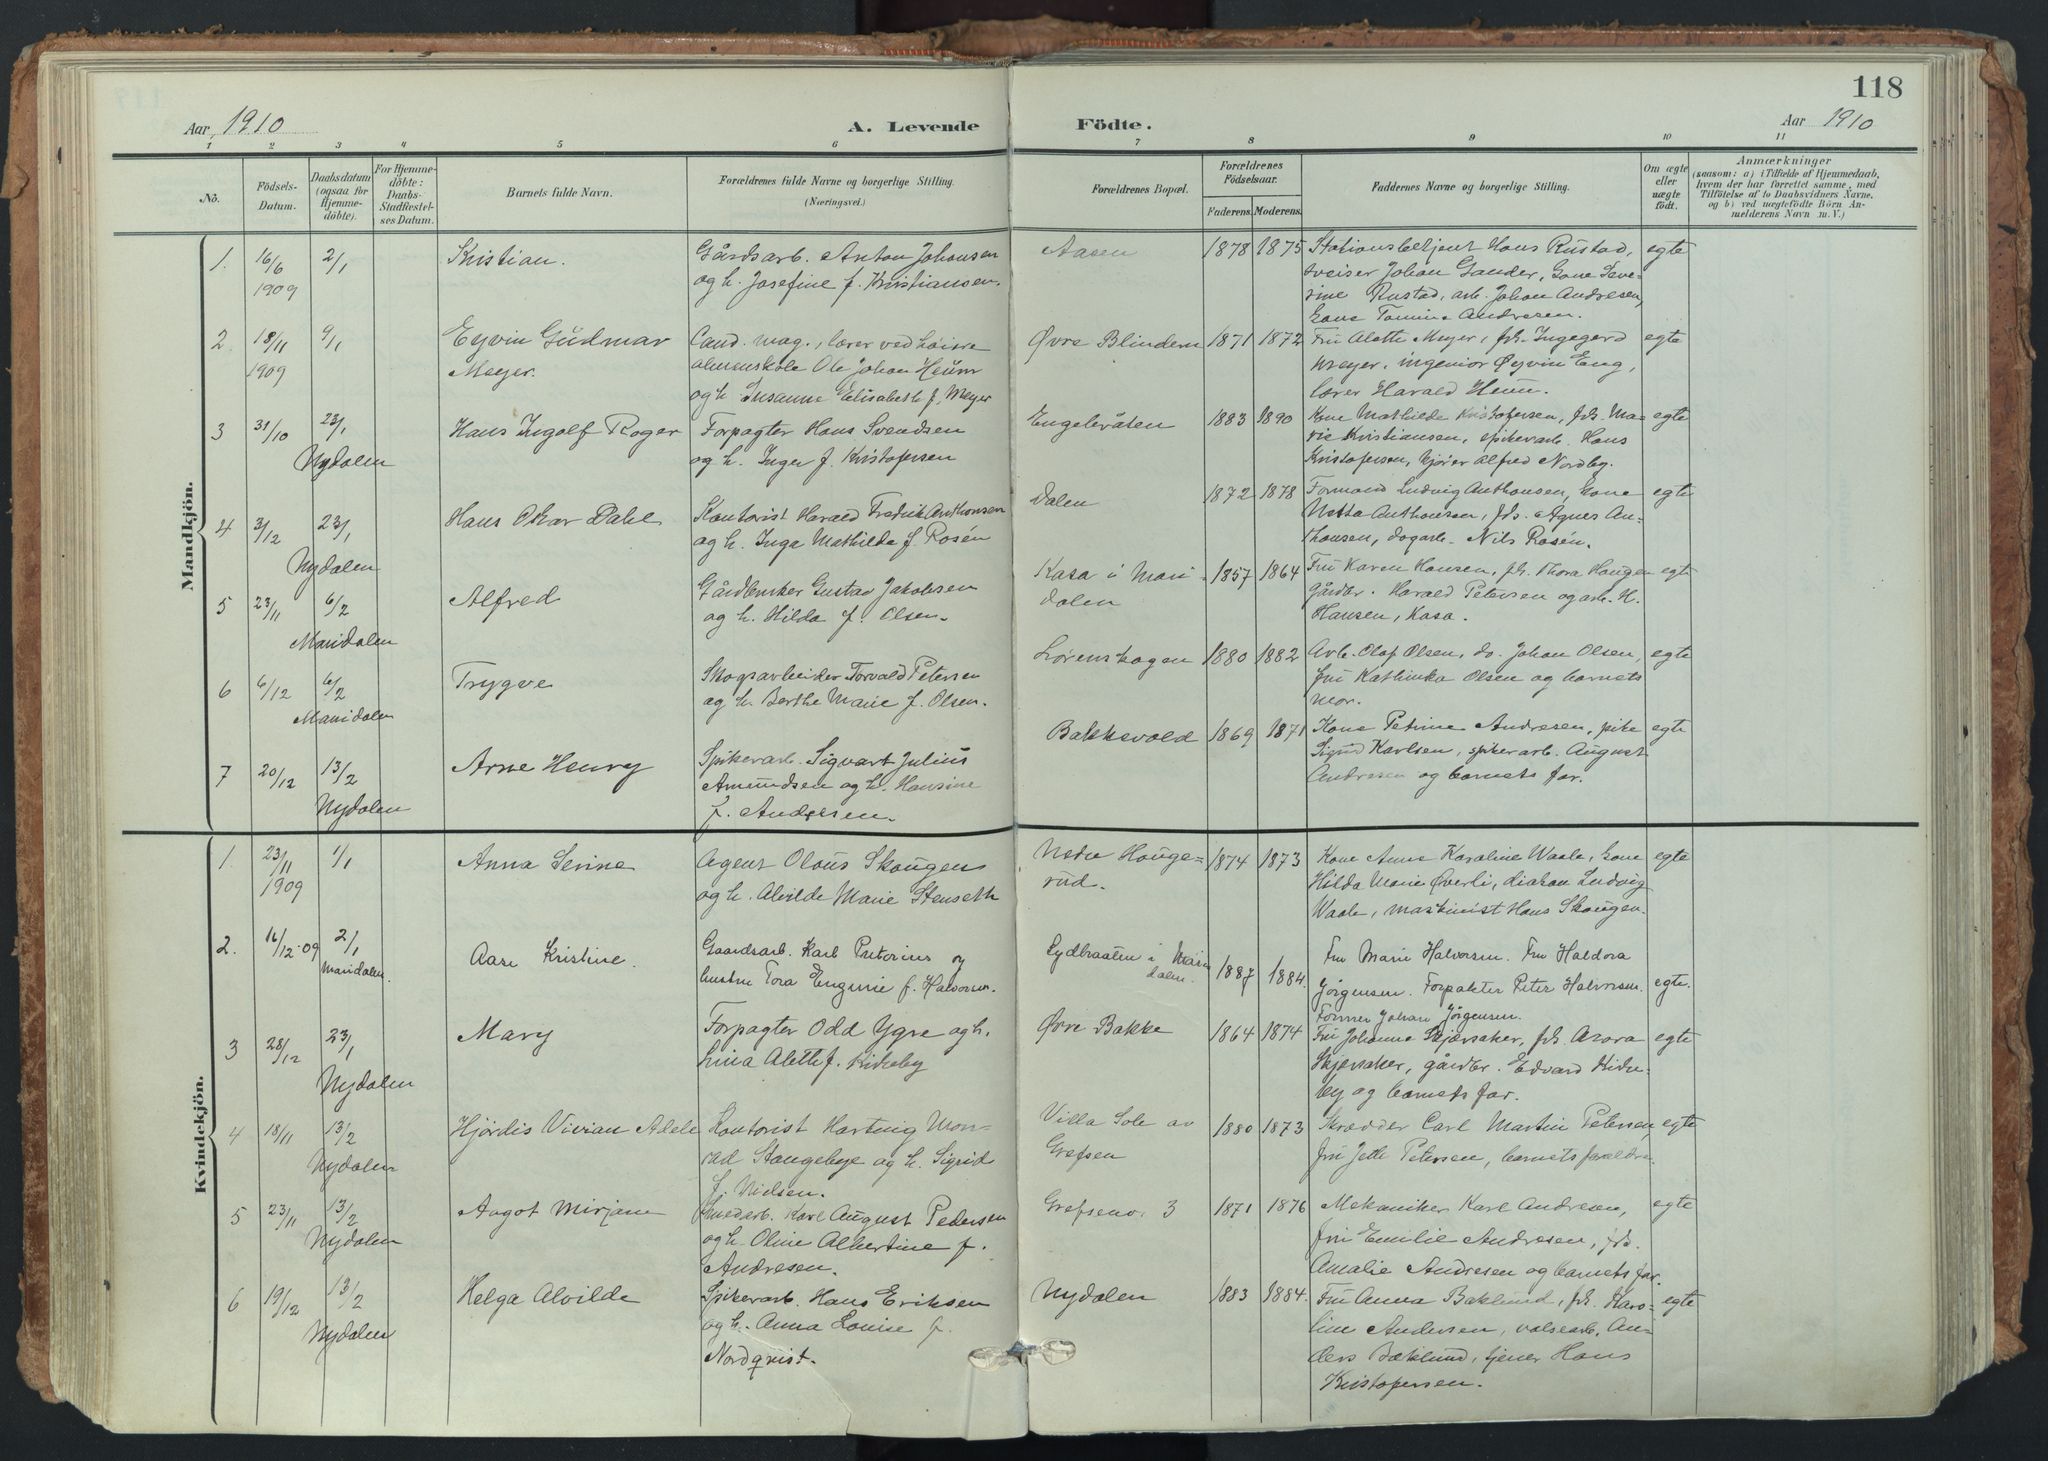 118
Aar 1910 A. Levende Födte. Aar 1910
1 2 3 4 5 6 7 8 9 10 11
No. Födsels-Datum. Daabsdatum (ogsaa for Hjemmedöbte). For Hjemmedöbte: Daabs-Stadfæstelses Datum. Barnets fulde Navn. Forældrenes fulde Navne og borgerlige Stilling. (Næringsvei.) Forældrenes Bopæl. Forældrenes Födselsaar. Faderens. Moderens. Faddernes Navne og borgerlige Stilling. Om ægte eller uægte födt. Anmærkninger (saasom: a) i Tilfælde af Hjemmedaab, hvem der har forrettet samme, med Tilföielse af to Daabsvidners Navne, og b) ved uægtefödte Börn Anmelderens Navn m.V.)
Mandkjön.
1. 16/6 2/1 Kristian. Gårdsarb. Anton Johansen Aasen 1878 1875 Stationsbetjent Hans Rustad, egte
1909 og h. Josefine f. Kristiansen. sveiser Johan Gander, kone Seve-
rine Rustad, arb. Johan Andresen,
kone Andresen.
2. 18/11 9/1 Eyvin Gudmar Cand. mag., lærer ved høiere Øvre Blindern 1871 1872 Fru Alette Meyer, frk. Ingegerd egte
1909 Meyer. almenskole Ole Johan Heum Meyer, ingeniør Øyvin Eng,
og h. Susanne Elisabeth f. Meyer lærer Harald Heum.
3 31/10 23/1 Hans Ingolf Roger Forpagter Hans Svendsen Engelsråten 1883 1890 Kone Mathilde Kristofersen, frk. Ma- egte
Nydalen og h. Inger f. Kristofersen rie Kristiansen, spikerarb. Hans
Kristofersen, kjører Alfred Nordby.
4 3/12 23/1 Hans Oskar Dahl Kontorist Harald Fredrik Anthonsen Dalen 1872 1878 Formand Ludvig Anthonsen, kone egte
Nydalen og h. Inga Mathilde f. Rosén Netta Anthonsen, frk. Agnes An-
thonsen, dagarb. Nils Rosén.
5 23/11 6/2 Alfred Gårdbruker Gustav Jakobsen Kasa i Mari- 1857 1864 Fru Karen Hansen, frk. Thora Haugen egte
Maridalen og h. Hilda f. Olsen. dalen gårdbr. Harald Petersen og arb. H.
Hansen, Kasa.
6 6/12 6/2 Trygve Skogsarbeider Torvald Petersen Lørenskogen 1880 1882 Arb. Olaf Olsen, do. Johan Olsen, egte
Maridalen og h. Berthe Marie f. Olsen. fru Kathinka Olsen og barnets
mor.
7 20/12 13/2 Arne Henry Spikerarb. Sigvart Julius Bakkevold 1869 1871 Kone Petrine Andresen, pike egte
Nydalen Amundsen og h. Hansine Sigrid Karlsen, spikerarb. August
f. Andersen. Andresen og barnets far.
Kvindekjön.
1. 23/11 1/1 Anna Serine Agent Olaus Skaugen Nedre Hauge- 1874 1873 Kone Anna Karoline Waale, kone egte
1909 og h. Alvilde Marie Stenseth rud. Hilda Marie Øverli, diakon Ludvig
Waale, maskinist Hans Skaugen.
2. 16/12-09 2/1 Aase Kristine. Gaardsarb. Karl Pretorius og i Mari- 1887 1884. Fru Marie Halvorsen. Fru Haldora
Maridalen hustru Tora Enginie f. Halvorsen. dalen. Jørgensen. Forpakter Peter Halvorsen. egte.
Former Johan Jörgensen.
3 28/12 23/1 Mary Forpagter Odd Ygre og h. Øvre Bakke 1864 1874 Fru Johanne Skjærsaker, frk. Asora egte
Nydalen Lina Alette f. Kirkeby Skjærsaker, gårdbr. Edvard Kirke-
by og barnets far.
4 18/11 13/2 Hjördis Vivian Adele Kontorist Hartvig Mon- Villa Sole av 1880 1873 Skrædder Carl Martin Petersen, egte
Nydalen rad Stangebye og h. Sigrid Grefsen fru Jelle Petersen, barnets forældre.
f. Nielsen.
5 23/11 13/2 Aagot Mirjam Smedarb. Karl August Pedersen Grefsenv. 3 1871 1876 Mekaniker Karl Andresen, egte
Nydalen og h. Oline Albertine f. fru Emilie Andresen, frk.
Andresen. Amalie Andresen og barnets far.
6 19/12 13/2 Helga Alvilde Spikerarb. Hans Eriksen Nydalen 1883 1884. Fru Anna Baklund, frk. Karo- egte
Nydalen og h. Anna Louise f. line Andersen, valsearb. An-
Nordqvist. ders Bæklund, tjener Hans
Kristofersen.